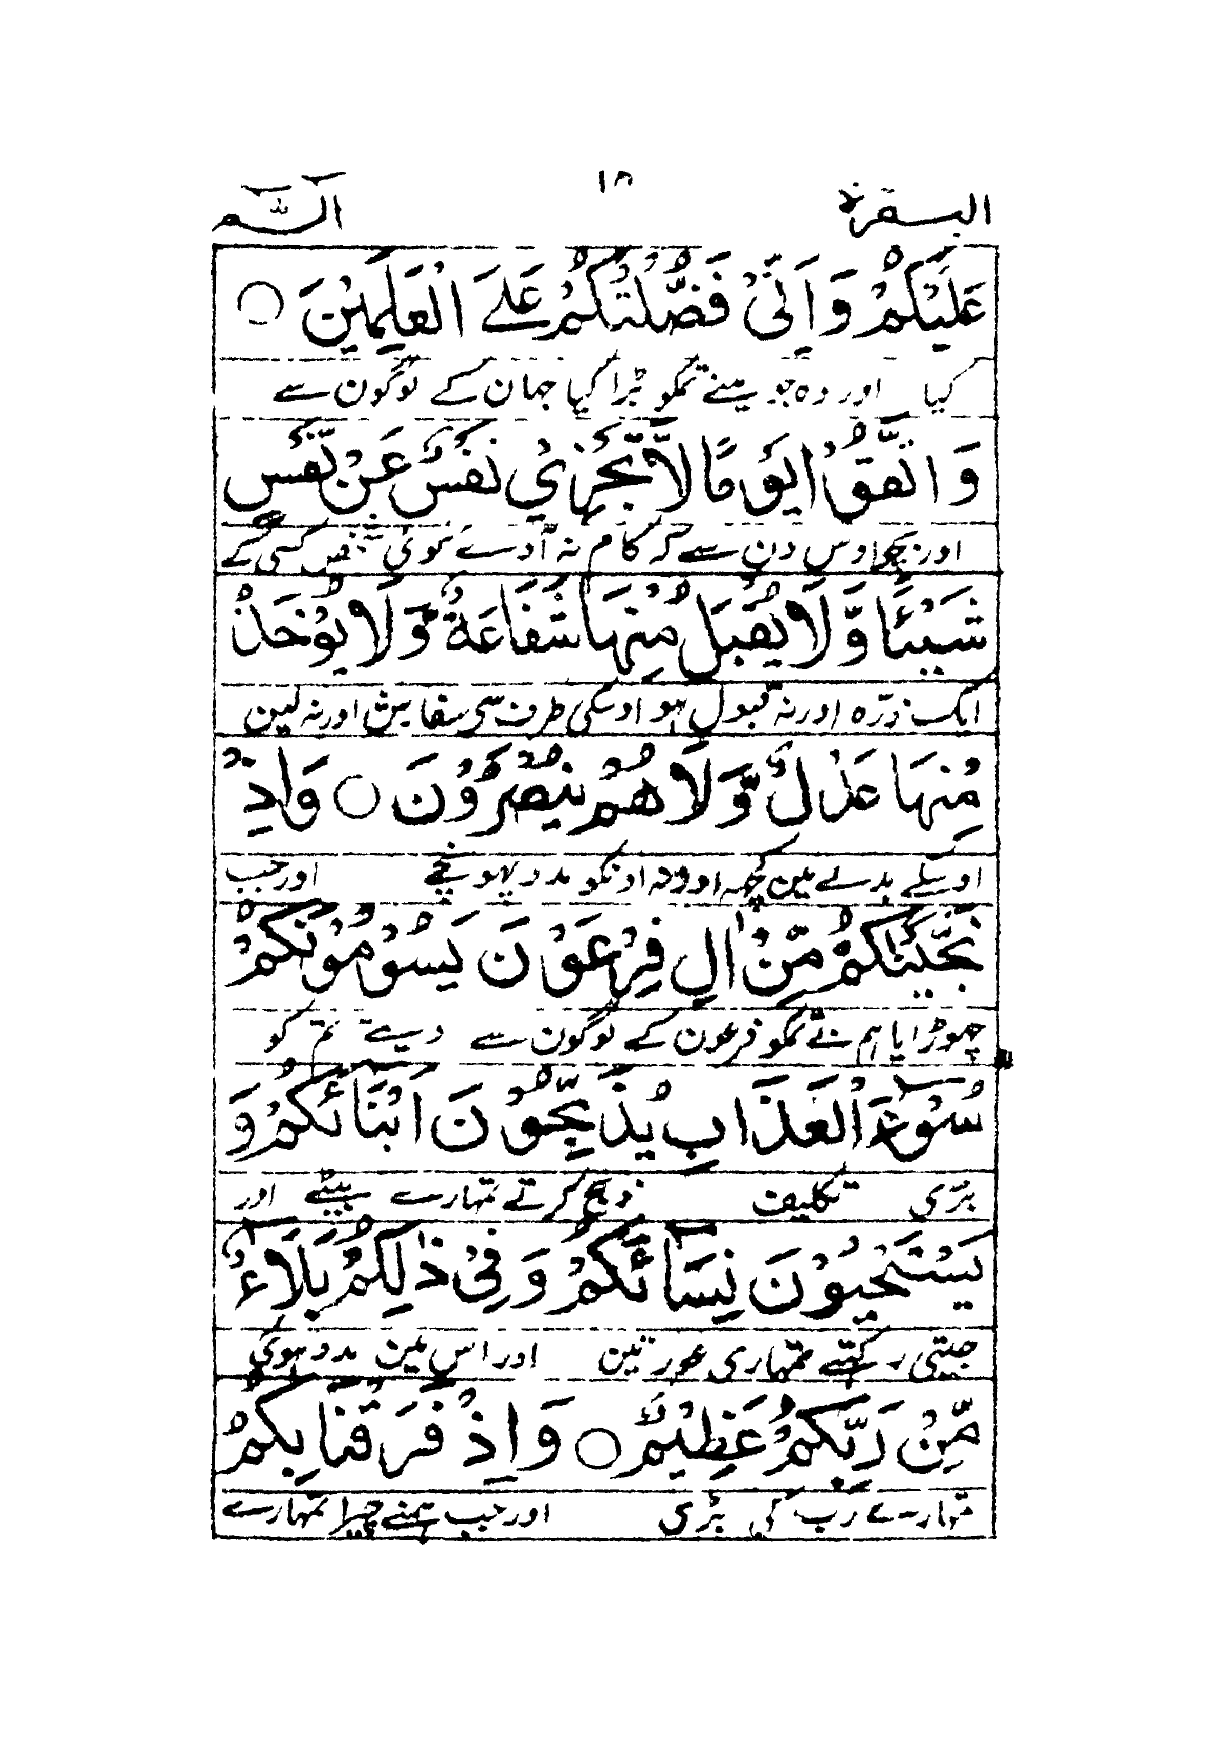 البقرة ١٥ الٓمٓ
عَلَيْكُمْ وَاَنِّىْ فَضَّلْتُكُمْ عَلَى الْعٰلَمِيْنَ ○
کیا اور وہ جو مینے تمکو بڑا کیا جہان کے لوگون سے
وَاتَّقُوْا يَوْمًا لَّا تَجْزِىْ نَفْسٌ عَنْ نَّفْسٍ
اور بچو اوس دن سے کہ کام نہ آوے کوئی شخص کسی کے
شَيْئًا وَّلَا يُقْبَلُ مِنْهَا شَفَاعَةٌ وَّلَا يُؤْخَذُ
ایک ذرّہ اور نہ قبول ہو اوسکی طرف سی سفارش اور نہ لین
مِنْهَا عَدْلٌ وَّلَا هُمْ يُنْصَرُوْنَ ○ وَاِذْ
اوسکے بدلے مین کچہہ اور نہ اونکو مدد پہونچے اور جب
نَجَّيْنٰكُمْ مِّنْ اٰلِ فِرْعَوْنَ يَسُوْمُوْنَكُمْ
چھوڑایا ہم نے تمکو فرعون کے لوگون سے دیتے تم کو
سُوْٓءَ الْعَذَابِ يُذَبِّحُوْنَ اَبْنَآئَكُمْ وَ
بڑی تکلیف ذبح کرتے تمہارے بیٹے اور
يَسْتَحْيُوْنَ نِسَآئَكُمْ وَفِىْ ذٰلِكُمْ بَلَآءٌ
جیتی رکہتے تمہاری عورتین اور اس مین مدد ہوئی
مِّنْ رَّبِّكُمْ عَظِيْمٌ ○ وَاِذْ فَرَقْنَا بِكُمُ
تمہارے رب کی بڑی اور جب ہمنے چیرا تمہارے